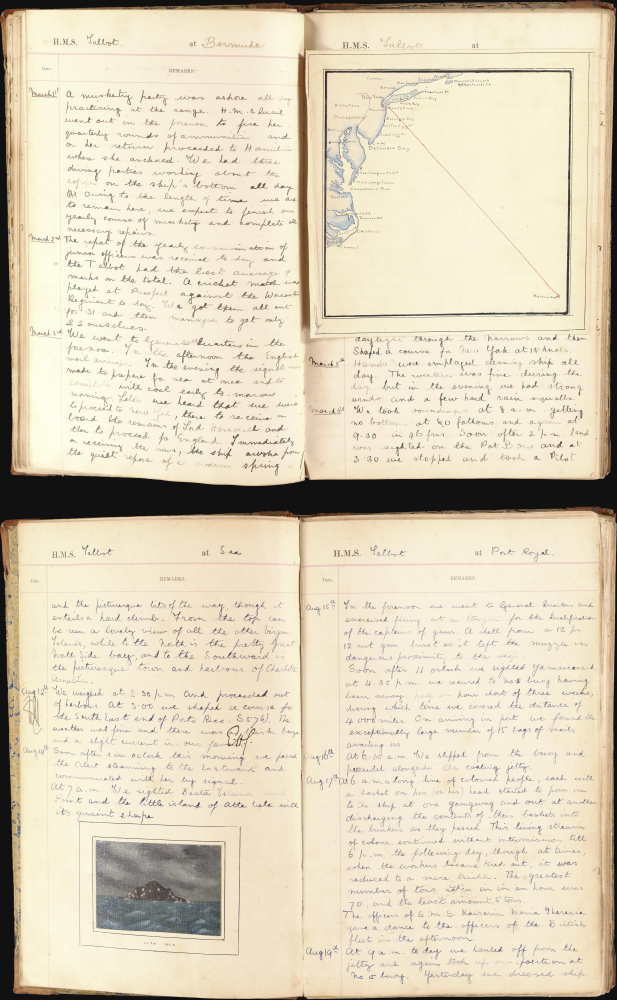 H.M.S. Talbot. at Bermuda
Date. REMARKS
March 1st A musketry party was ashore all day
practising at the range. H.M.S.
went out in the forenoon to fire her
quarterly rounds of ammunition and
on her return proceeded to Hamilton
when she anchored. We had three
diving parties working about the
copper on the ship's bottom all day
Owing to the length of time we are
to remain here, we expect to finish our
yearly course of musketry and complete all
necessary repairs.
March 2nd The report of the yearly examination of
junior officers was received to day and
the Talbot had the best average of
marks on the total. A cricket match was
played at Prospect against the Worcester
Regiment to day. We got them all out
for 31 and then managed to get only
22 ourselves.
March 3rd We went to General Quarters in the
forenoon. In the afternoon the English
mail arrived. In the evening the signal was
made to prepare for sea at once and to
complete with coal early to-morrow
morning. Later we heard that we were
to proceed to New York, there to receive on
board the remains of Lord Herschell and
then to proceed to England. Immediately
on receiving the news, the ship awoke from
the quiet repose of a warm spring
H.M.S. Talbot at
Delaware Bay
Bermuda
daylight through the narrows and then
shaped a course for New York at 15 knots.
March 5th Hands were employed cleaning ship all
day. The weather was fine during the
day but in the evening we had strong
winds and a few hard rain squalls.
March 6th We took soundings at 8 a.m. getting
no bottom at 80 fathoms and again at
9.30 in 26 fms. Soon after 2 p.m. land
was sighted on the Port Bow and at
3.30 we stopped and took a Pilot
H.M.S. Talbot at Sea
Date. REMARKS
and the picturesque bits of the way, though it
entails a hard climb. From the top can
be seen a lovely view of all the other Virgin
Islands, while to the North is the pretty Great
North Side Bay, and to the Southward is
the picturesque town and harbour of Charlotte
Amalia.
Aug 12th We weighed at 2.30 p.m. and proceeded out
of harbour. At 3.00 we shaped a course for
the South East end of Porto Rico. S57W. The
weather was fine and there was a fresh breeze
and a slight current in our favour
Soon after six oclock this morning we passed
the Alert steaming to the Eastward and
communicated with her by signal.
At 7 a.m. We sighted Beata Island and
Point and the little island of Alta Vela with
its quaint shape
ALTA VELA
H.M.S. Talbot at Port Royal.
Date. REMARKS
Aug 15th In the forenoon we went to General Quarters and
exercised firing at a target for the qualification
of the captains of guns. A shell from a 12 pr
12 cwt gun burst as it left the muzzle in
dangerous proximity to the
Soon after 11 oclock we sighted Jamaica and
at 4.35 p.m. we secured to No 5 buoy having
been away half an hour short of three weeks,
during which time we covered the distance of
4000 miles. On arriving in port we found the
exceptionally large number of 15 bags of mails
awaiting us
Aug 16th At 6.30 a.m. We slipped from the buoy and
proceeded alongside the coaling jetty.
Aug 17th At 6 a.m. a long line of coloured people, each with
a basket on his (or her) head started to pour in
to the ship at one gangway and out at another
discharging the contents of their baskets into
the bunkers as they passed. This living stream
of colour continued without intermission till
6 p.m. the following day, though at times,
when the workers became tired out, it was
reduced to a mere trickle. The greatest
number of tons taken in in an hour was
70, and the least amount 5 tons.
The officers of S.M.S. Kaiserin Maria Theresia
gave a dance to the officers of the British
fleet in the afternoon
Aug 19th At 9 a.m. to day we hauled off from the
jetty and again took up our position at
No 5 buoy. Yesterday we dressed ship